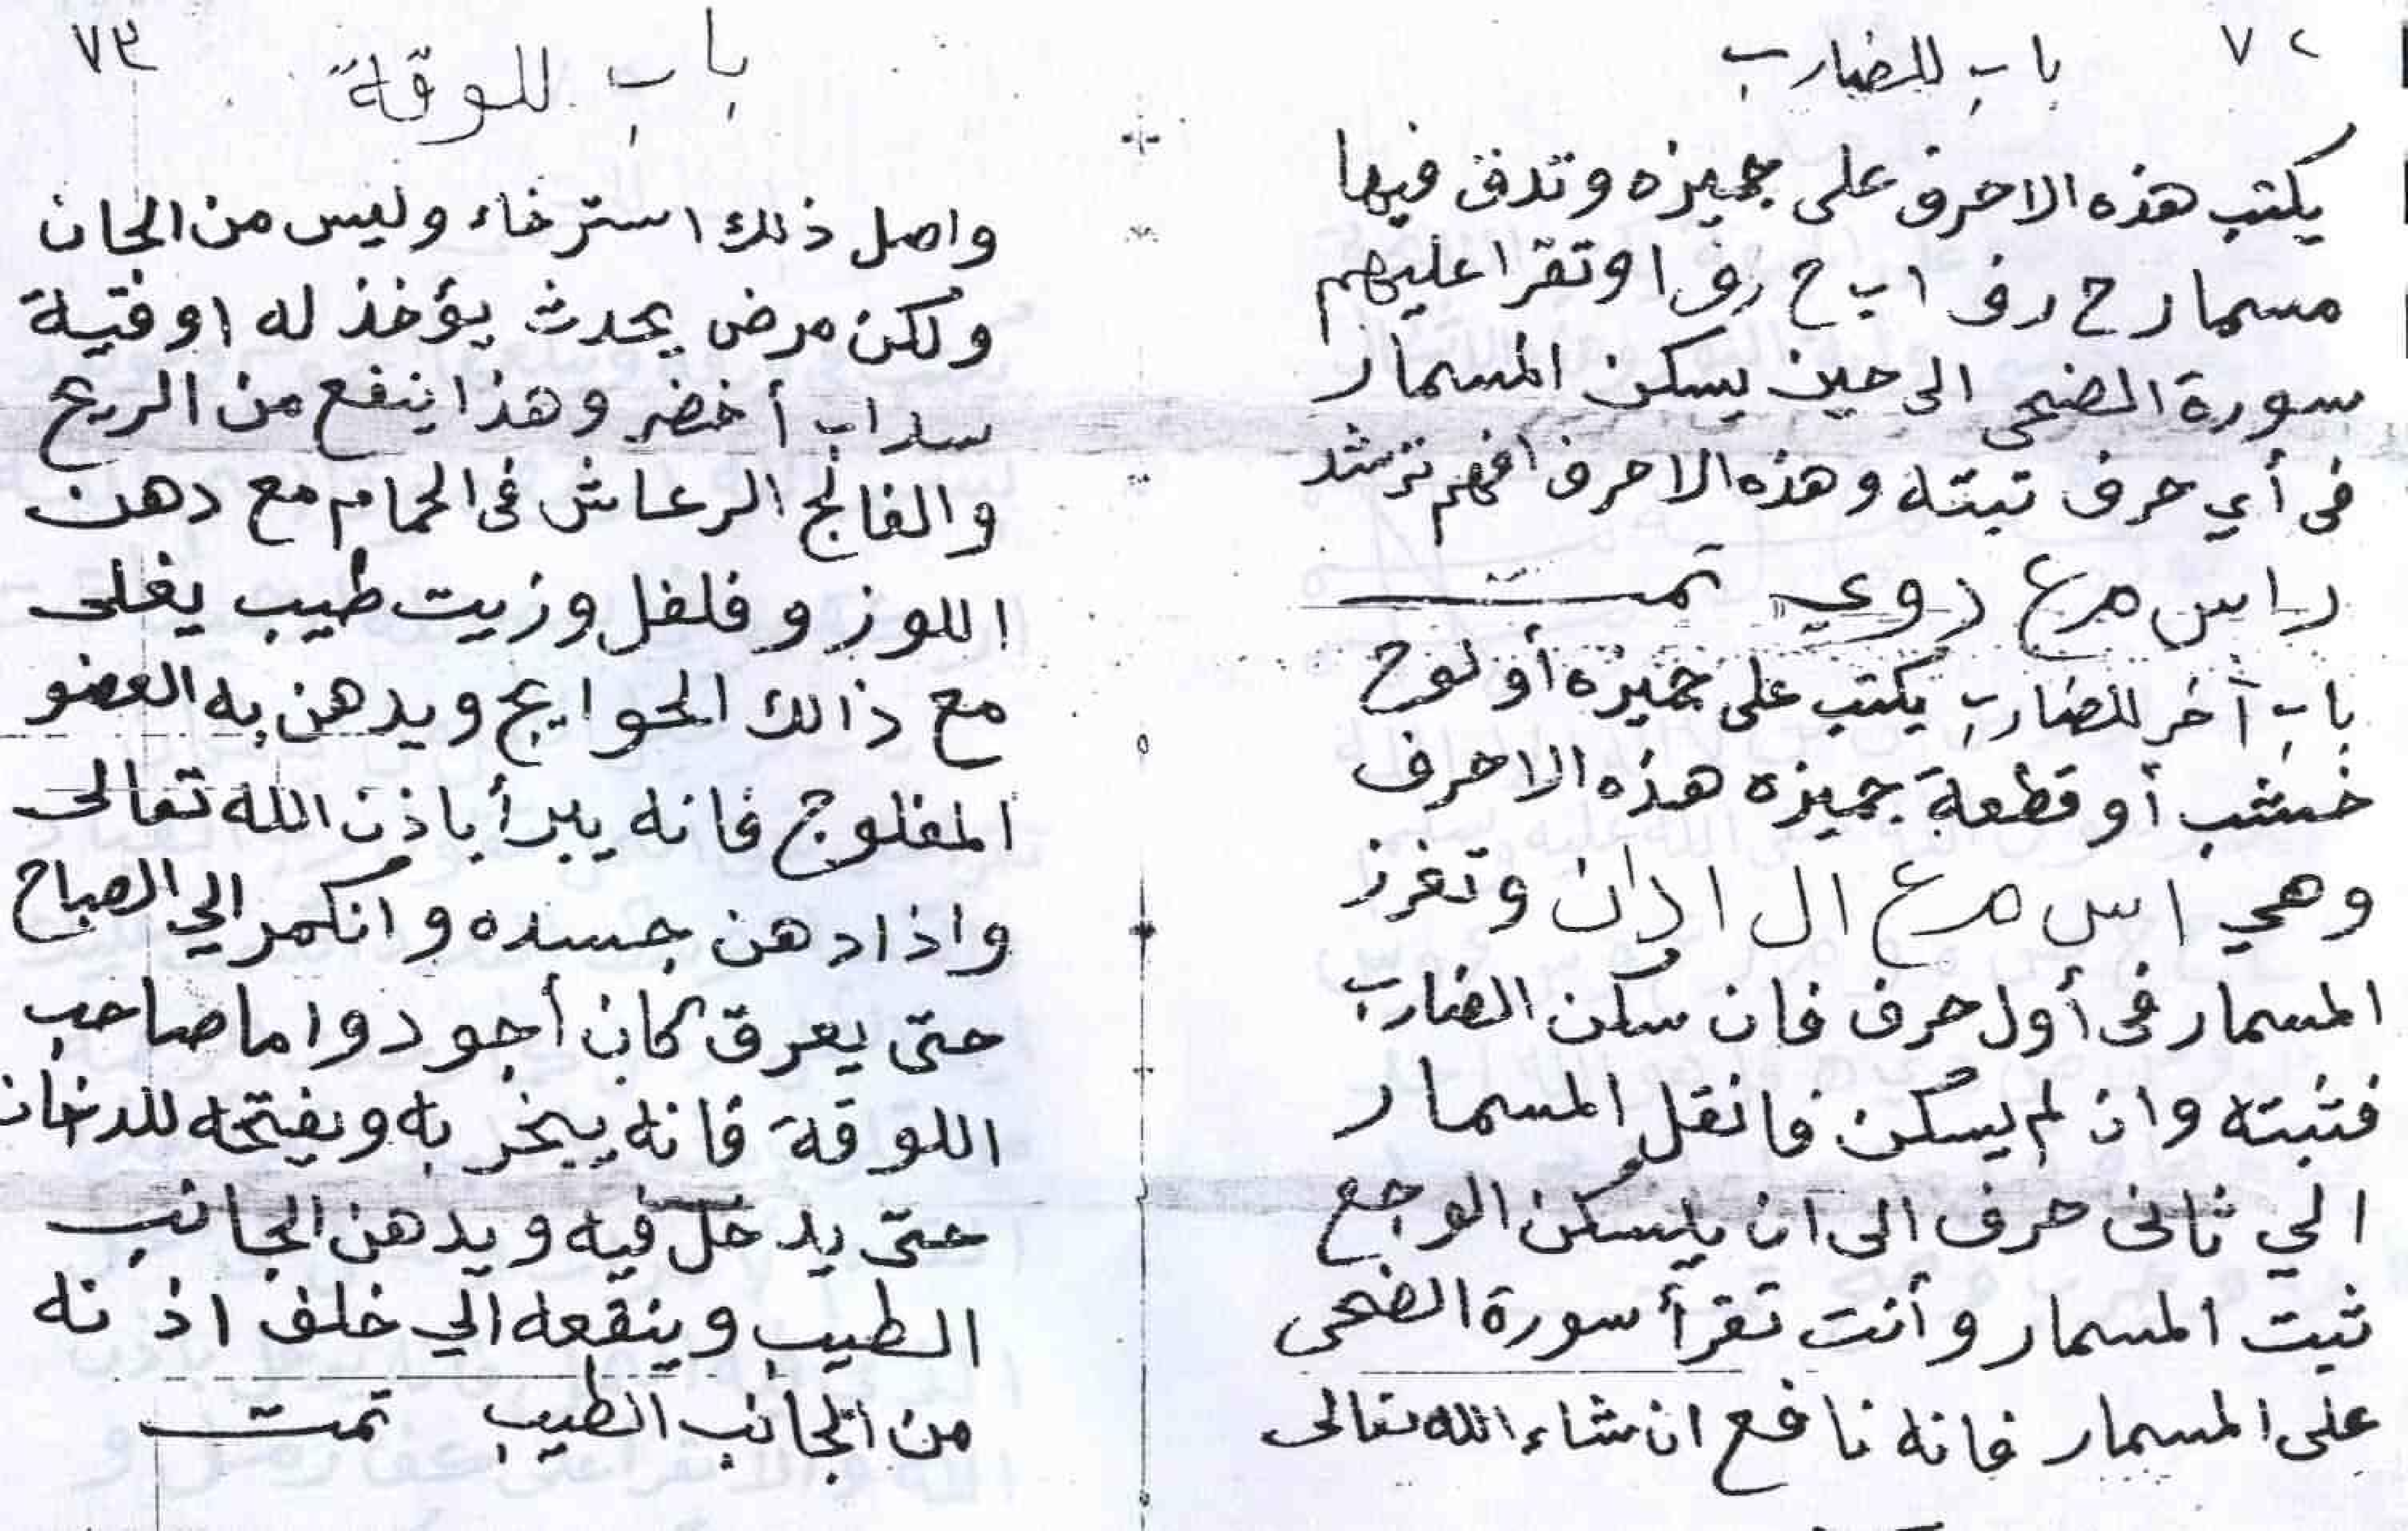 ٧٢
باب للضارب
يكتب هذه الاحرف على جميزه وتدق فيها
مسمار ح رف اب ح رف ا وتقرا عليهم
سورة الضحى الى حين يسكن المسمار
فى أي حرف تبتته وهذه الاحرف افهم ترشد
راس مرع روي تمت
باب أخر للضارب يكتب على جميزه أو لوح
خشب أو قطعة جميزه هذه الاحرف
وهي اس مرع ال ادان وتغرز
المسمار فى أول حرف فان سكن الضارب
فثبته وان لم يسكن فانقل المسمار
الي ثانى حرف الى ان يسكن الوجع
ثبت المسمار وأنت تقرأ سورة الضحى
على المسمار فانه نافع ان شاء الله تعالى
٧٣
باب للوقة
واصل ذلك استرخاء وليس من الجان
ولكن مرض يحدث يؤخذ له اوقية
سداب أخضر وهذا ينفع من الريح
والفالج الرعاش فى الحمام مع دهن
اللوز وفلفل وزيت طيب يغلى
مع ذالك الحوايج ويدهن به العضو
المفلوج فانه يبرأ باذن الله تعالى
واذا دهن جسده وانكمر الي الصباح
حتى يعرق كان أجود واما صاحب
اللوقة فانه يبخر به ويفتحه للدخان
حتى يدخل فيه ويدهن الجانب
الطيب وينقعه الي خلف اذنه
من الجانب الطيب تمت